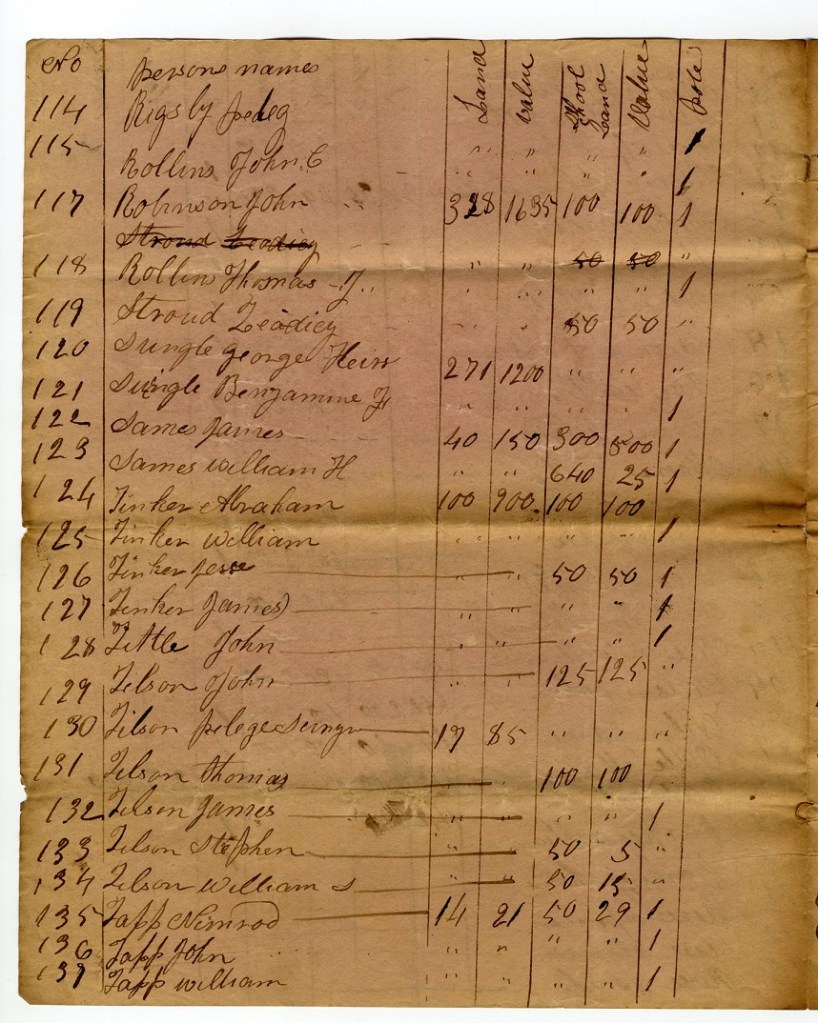 No persons names Land value Skool Land Value pole
114 Rigsby peleg " " " " 1
115 Rollins John C " " " " 1
117 Robinson John " 328 1635 100 100 1
Stroud Leadicy " " 50 50 "
118 Rollins Thomas J " " " " 1
119 Stroud Leadicy " " 50 50 "
120 Swingle george Heirs 271 1200 " " "
121 Swingle Benjamine F " " " " 1
122 Sames James 40 150 300 500 1
123 Sames william H " " 640 25 1
124 Tinker Abraham 100 900 100 100
125 Tinker william " " " " 1
126 Tinker Jesse " " 50 50 1
127 Tinker James " " " " 1
128 Tittle John " " " " 1
129 Tilson John " " 125 125 "
130 Tilson pelege 17 85 " " "
131 Tilson thomas " " 100 100 "
132 Tilson James " " " " 1
133 Tilson Stephen " " 50 5 "
134 Tilson william S " " 50 15 "
135 Tapp Nimrod 14 21 50 29 1
136 Tapp John " " " " 1
137 Tapp william " " " " 1